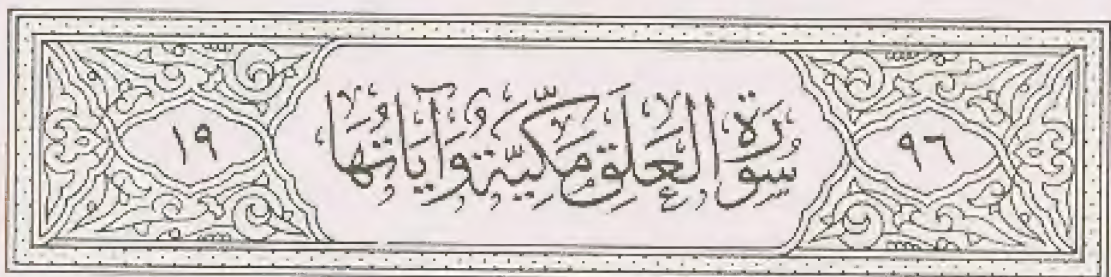 ٩٦ سُورَةُ الْعَلَقِ مَكِّيَّة وَآيَاتُهَا ١٩